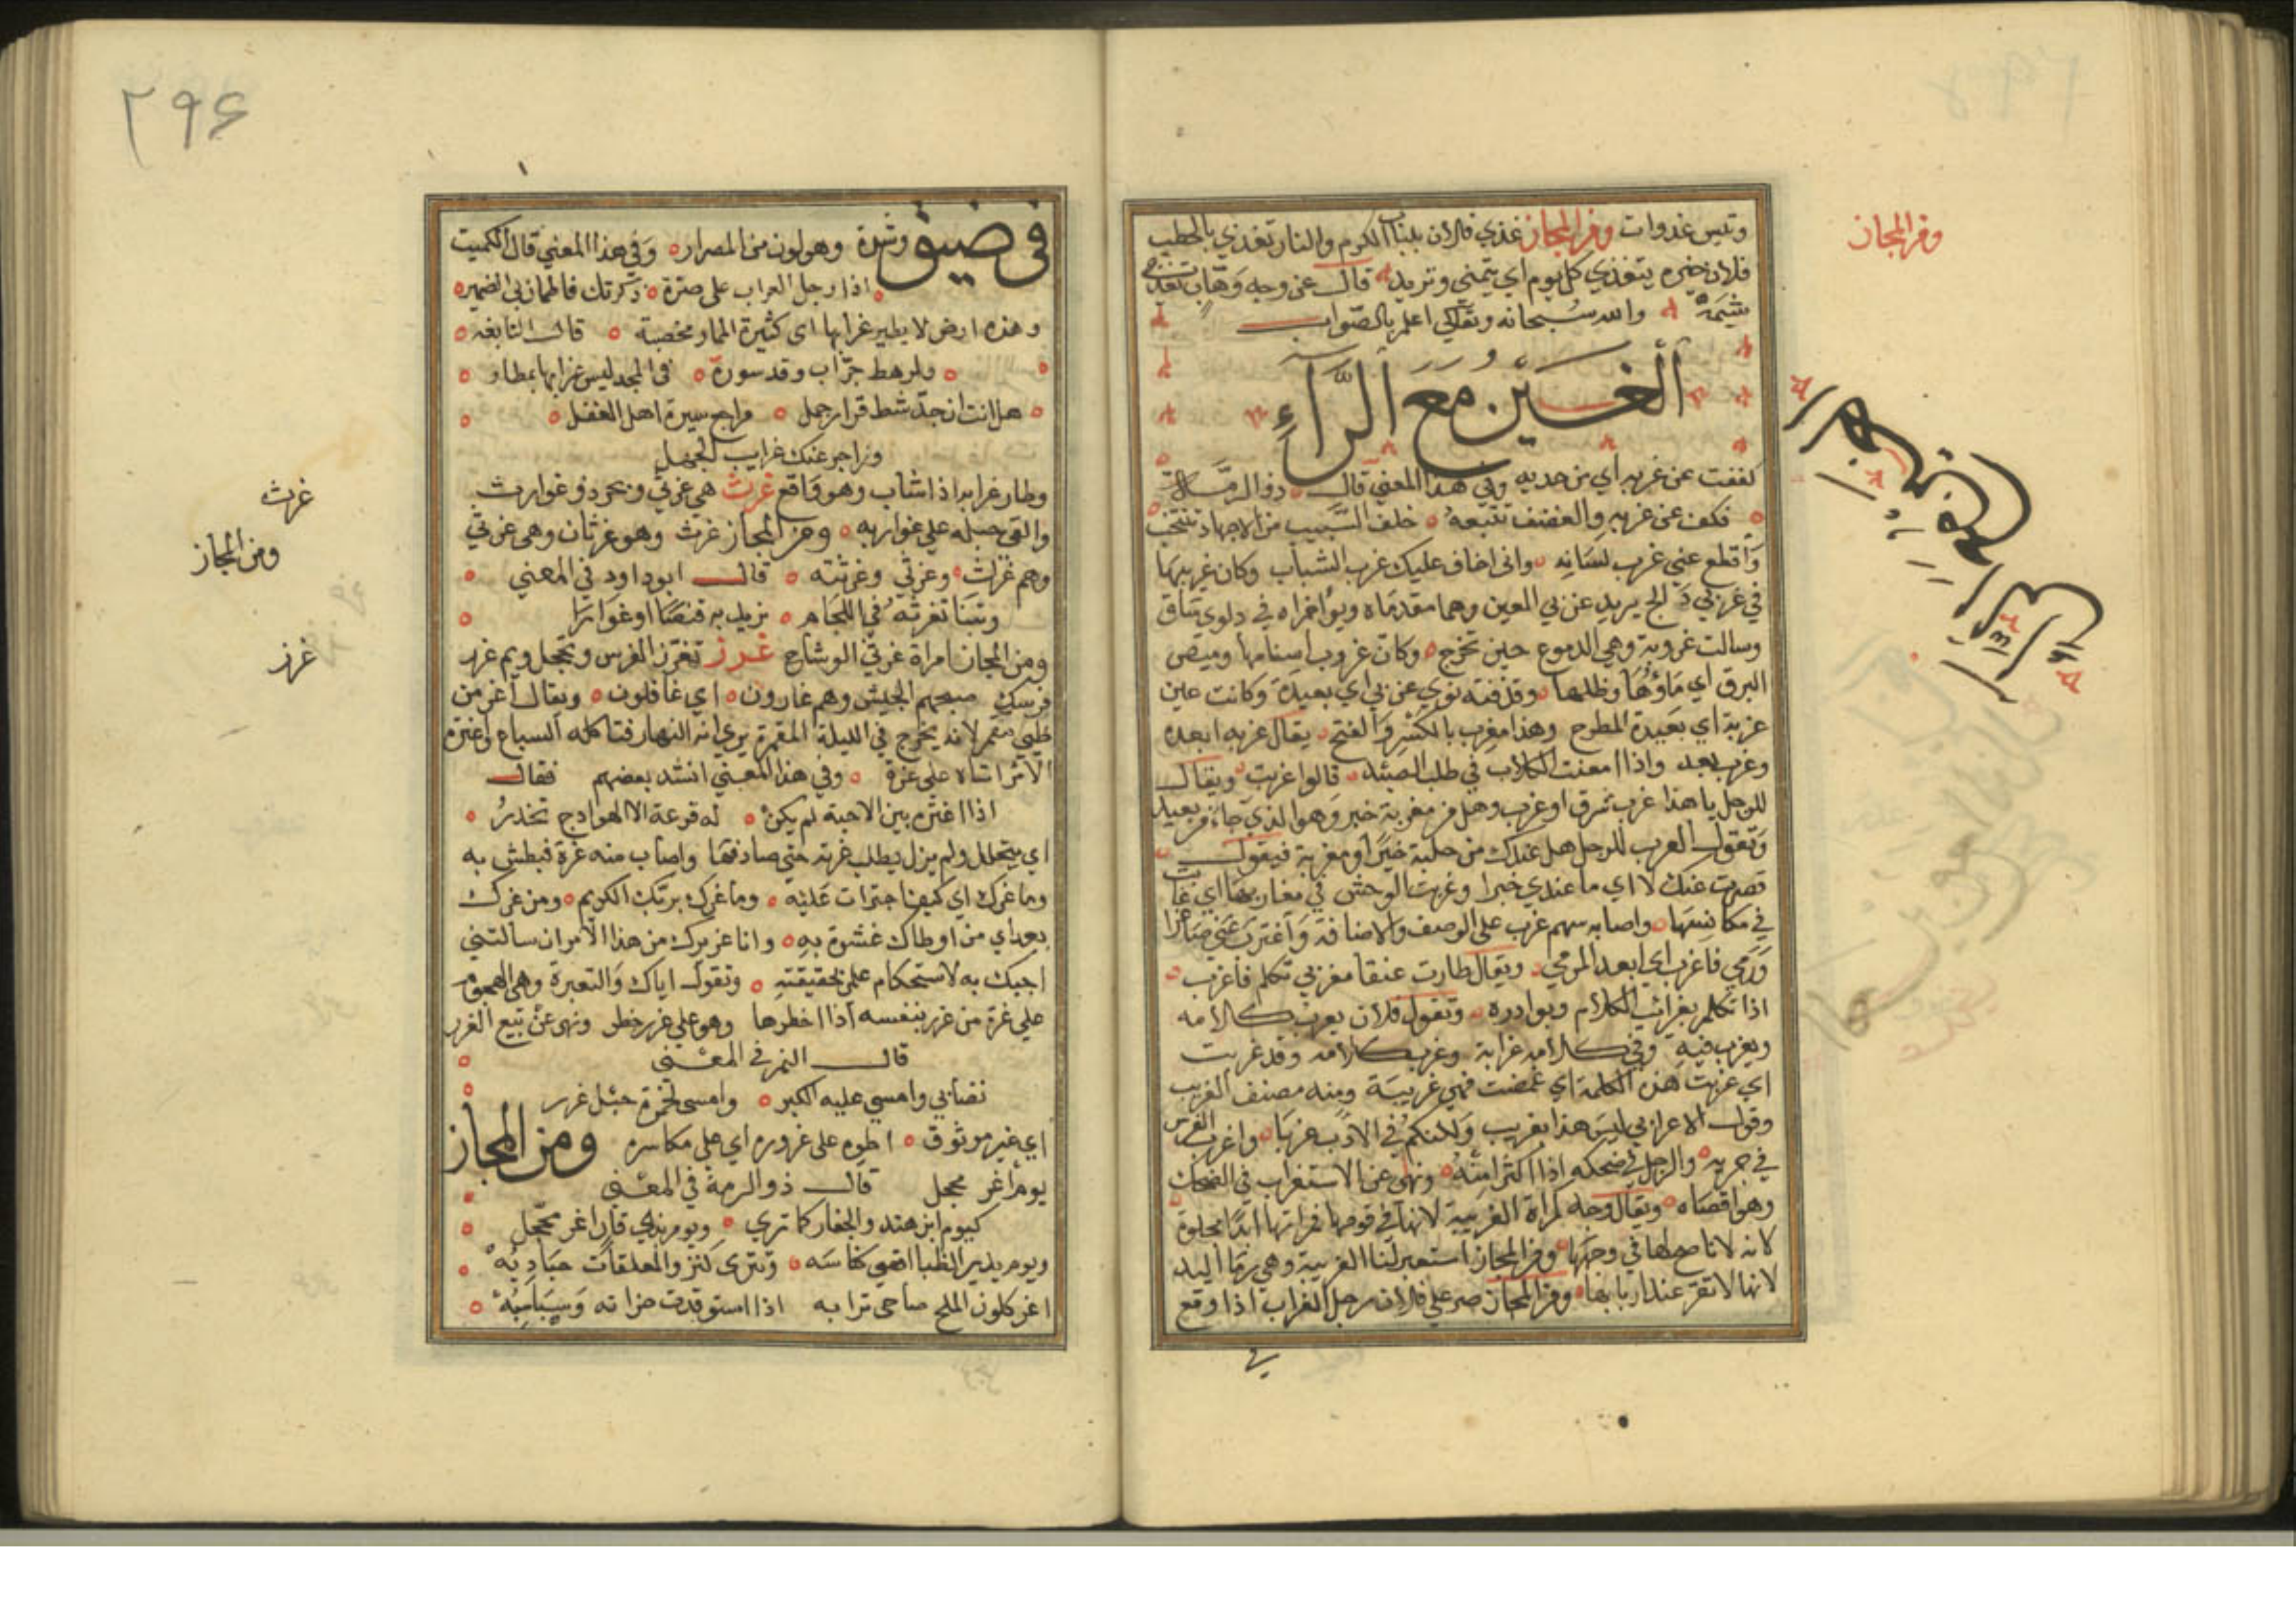 ومن المجاز
وتيس غذوات ومن المجاز غذي فلان بلبان الكرم والنار تغذي بالحطب
فلان خيره يتغذي كل يوم اي يتمنى وتزيد قال عن وجه وهاب تغذى
شيمه والله سبحانه وتعالى اعلم بالصواب
الغين مع الراء
كففت عن غربه اي من حديه وفي هذا المعني قال ذو الرمة
فكف عن غربه والغضف تتبعه خلف السبيب من الاجهاد تنتحب
واقطع عني غرب لسانه واني اخاف عليك غرب الشباب وكان غربيها
في غربي دالج يريد غربي العين وهما مقدماه ويؤاخراه في دلوي ساق
وسالت غروبه وهي الدموع حين تخرج وكان غروب اسنامها وميض
البرق اي ماؤها وظلمها وقذفته نوي غربي اي بعيدة وكانت عين
غربة اي بعيدة المطرح وهذا مغرب بالكسر والفتح يقال غربه ابعده
وغرب بعد واذا امعنت الكلاب في طلب الصيد قالوا غربت ويقال
للرجل يا هذا غرب شرق او غرب وهل من مغربة خبر وهو الذي جاء من بعيد
وتقول العرب للرجل هل عندك من جلبة خبر او مغربة فيقول
قصرت عنك لا اي ما عندي خبرا وغربت الوحش في مغاربها اي غابت
في مكانسها واصابه سهم غرب على الوصف والاضافة
ورمي فاغرب اي ابعد المرمي ويقال طارت عنقا مغربي تكلم فاغرب
اذا تكلم بغرائب الكلام وبوادره وتقول فلان يعرب كلامه
ويغرب فيه وفي كلامه غرابة وغرب كلامه وقد غربت
اي غربت هذه الكلمة اي غمضت فهي غريبة ومنه مصنف الغريب
وقول الاعرابي ليس هذا بغريب ولكنكم في الادب غربا واغرب الفرس
في جريه والرجل في ضحكه اذا اكثر منه ونهى عن الاستغراب في الضحك
وهو اقصاه ويقال وجه كمراة الغريبة لانها في قومها فمراتها ابدا مجلوة
كانه لا ناصح لها في وجهها ومن المجاز استعير لنا الغريبة وهي رحا اليد
لانها لا تقر عند اربابها ومن المجاز صر علي فلان رجل الغراب اذا وقع
في
٢٩۶
في ضيق وشدة وهو لون من المصرار وفي هذا المعني قال الكميت
اذا رجل الغراب على صرة ذكرتك فاطمان بي الضمير
وهذه ارض لا يطير غرابها اي كثيرة الثمار مخصبة قال النابغه
ولرهط حراب وقد سورة في المجد ليس غرابها بمطار
هل انت ان جد شط قرار جمل مراجع سيرة اهل العقل
وزاجر عنك غرايب الجهل
وطار غرابه اذا شاب وهو واقع غرث هي غرثي وبحر ذو غوارب
والقى حبله علي غواربه ومن المجاز غرث وهو غرثان وهي غرثي
وهم غراث وغرثي وغرثته قال ابو داود في المعني
وبتنا نغرثه في اللجام نريد به قنصا او غوارا
ومن المجاز امراة غرثي الوشاح غرز تغرز الفرس وتحجل وبم غرر
فرسك صبحهم الجيش وهم غارون اي غافلون ويقال اغر من
ظبي مقمر لانه يخرج في الليلة المقمرة يرى انه النهار فتاكله السباع واغتره
الامر اتاه على غرة وفي هذا المعني انشد بعضهم فقال
اذا اغتره بين الاحبة لم يكن له فزعة الا الهوادج تخدر
اي يتجلل ولم يزل يطلب غرته حتي صادفها واصاب منه غرة فبطش به
وما غرك اي كيف اجترات عليه وما غرك بربك الكريم ومن غرك
بعد اي من اوطاك عشوة به وانا غريرك من هذا الامر ان سالتني
اجبك به لاستحكام علمي بحقيقته وتقول اياك والتغرة وهي الهجوم
علي غرة من غرر بنفسه اذا اخطرها وهو علي غرر خطر ونهى عن بيع الغرر
قال النمر في المعني
تصابي وامسي عليه الكبر وامسى لحمرة حبل غرر
اي غير موثوق اطوه على غروره اي على مكاسره ومن المجاز
يوم اغر محجل قال ذو الرمة في المعني
كيوم ابن هند والجفار كما تري ويوم بذي قار اغر محجل
ويوم يدير الظبا اقصى كناسه وتنزى كنزو المعلقات جنادبه
اغر كلون الملح ضاحي ترابه اذا استوقدت حزانه وسباسبه
غرث
ومن المجاز
غرز